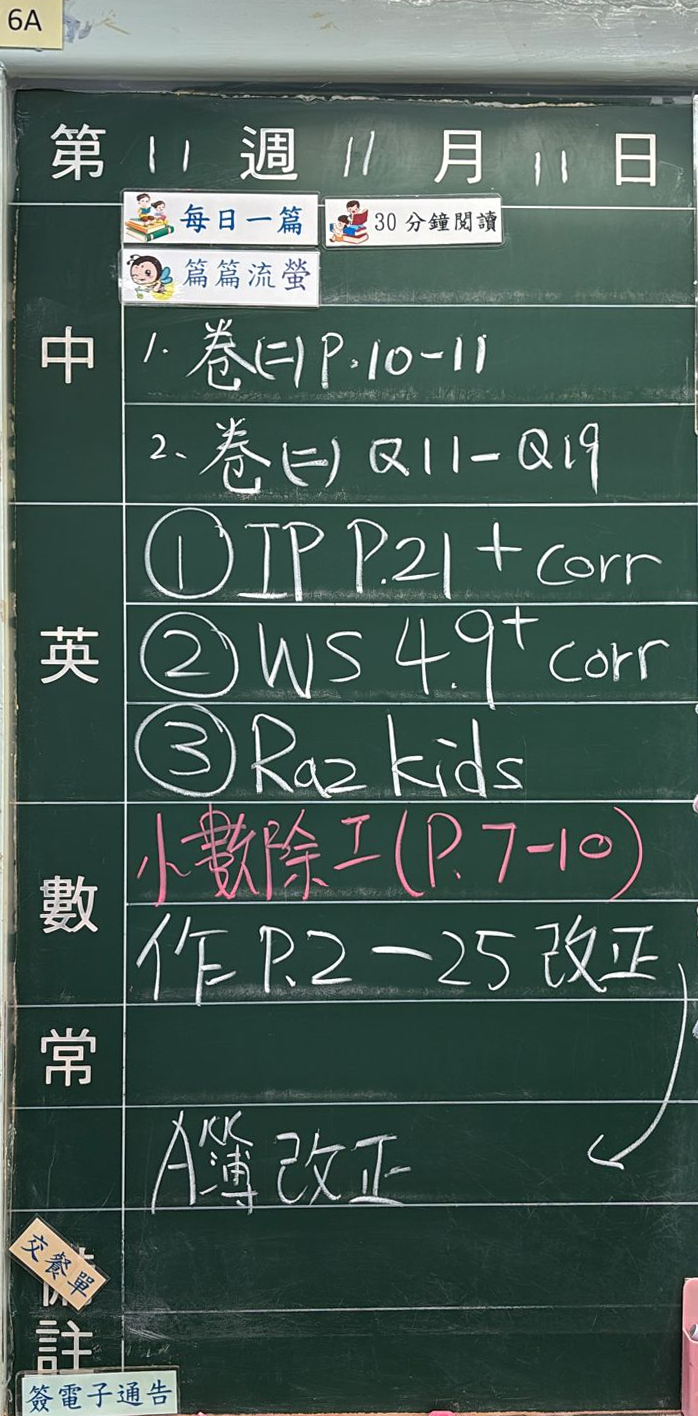 6A
第 11 週 11 月 11 日
每日一篇 30分鐘閱讀
篇篇流螢
中
1. 卷(二) P.10-11
2. 卷(二) Q11-Q19
英
① IP P.21 + corr
② WS 4.9 + corr
③ Raz kids
數
小數除工(P.7-10)
作 P.2-25 改正
常
A簿改正
交餐單
備註
簽電子通告